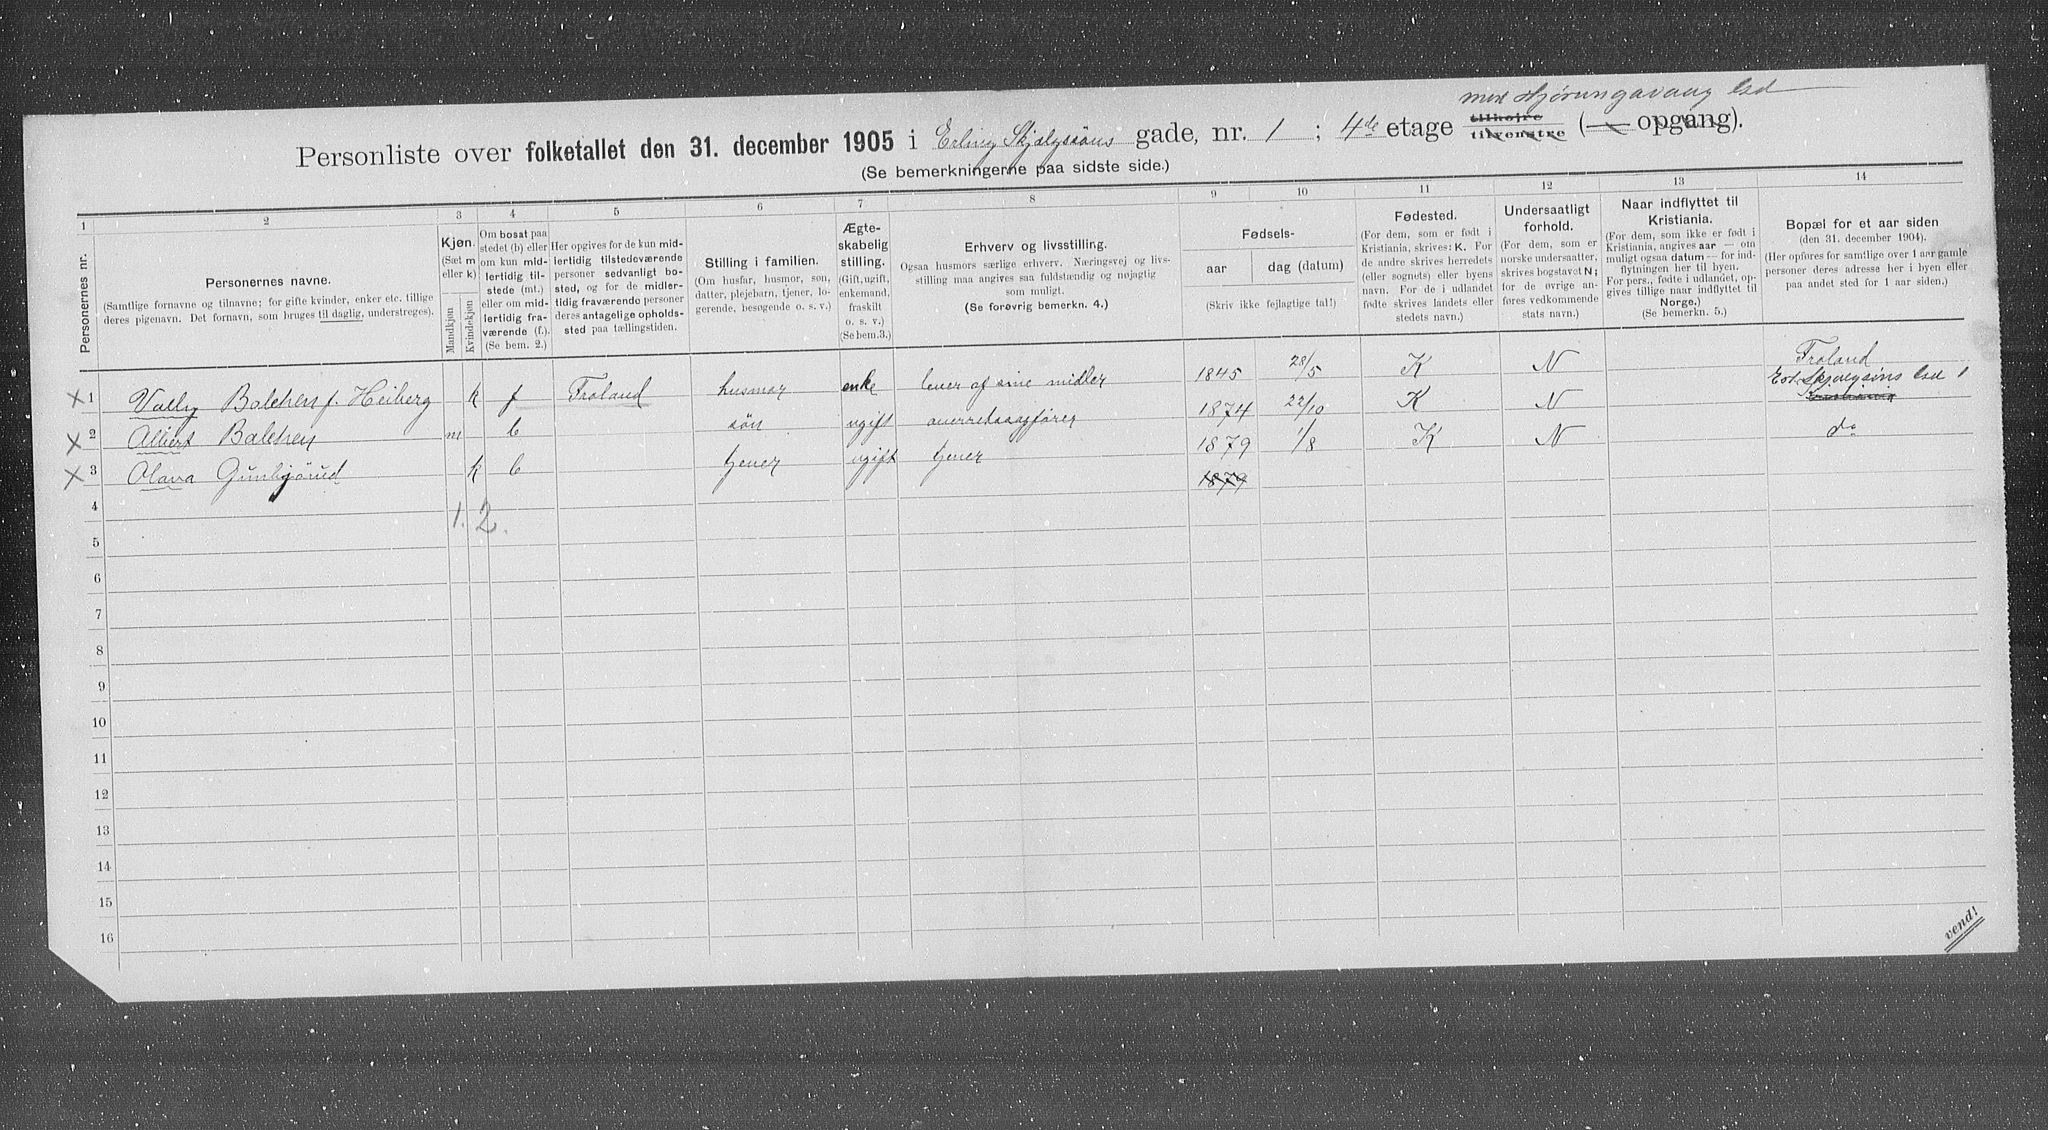 mot Hjørungavaag Gd
Personliste over folketallet den 31. december 1905 i Erling Skjalgssøns gade, nr. 1 ; 4de etage tilhøjre tilvenstre ( opgang).
(Se bemerkningerne paa sidste side.)
1 2 3 4 5 6 7 8 9 10 11 12 13 14
Personernes nr.
Personernes navne.
(Samtlige fornavne og tilnavne; for gifte kvinder, enker etc. tillige
deres pigenavn. Det fornavn, som bruges til daglig, understreges).
Kjøn.
(Sæt m
eller k)
Mandkjøn
Kvindekjøn
Om bosat paa
stedet (b) eller
om kun mid-
lertidig til-
stede (mt.)
eller om mid-
lertidig fra-
værende (f.).
(Se bem. 2.)
Her opgives for de kun mid-
lertidig tilstedeværende
personer sedvanligt bo-
sted, og for de midler-
tidig fraværende personer
deres antagelige opholds-
sted paa tællingstiden.
Stilling i familien.
(Om husfar, husmor, søn,
datter, plejebarn, tjener, lo-
gerende, besøgende o. s. v.)
Ægte-
skabelig
stilling.
(Gift, ugift,
enkemand,
fraskilt
o. s. v.)
(Se bem.3.)
Erhverv og livsstilling.
Ogsaa husmors særlige erhverv. Næringsvej og livs-
stilling maa angives saa fuldstændig og nøjagtig
som muligt.
(Se forøvrig bemerkn. 4.)
Fødsels-
aar dag (datum)
(Skriv ikke fejlagtige tal!)
Fødested.
(For dem, som er født i
Kristiania, skrives: K. For
de andre skrives herredets
(eller sognets) eller byens
navn. For de i udlandet
fødte skrives landets eller
stedets navn.)
Undersaatligt
forhold.
(For dem, som er
norske undersaatter,
skrives bogstavet N;
for de øvrige an-
føres vedkommende
stats navn.)
Naar indflyttet til
Kristiania.
(For dem, som ikke er født i
Kristiania, angives aar — om
muligt ogsaa datum — for ind-
flytningen her til byen.
For pers., fødte i udlandet, op-
gives tillige naar indflyttet til
Norge.)
(Se bemerkn. 5.)
Bopæl for et aar siden
(den 31. december 1904).
(Her opføres for samtlige over 1 aar gamle
personer deres adresse her i byen eller
paa andet sted for 1 aar siden.)
X 1 Vally Balchen f. Heiberg k f Froland husmor enke lever af sine midler 1845 28/5 K N Froland
X 2 Albert Balchen m b søn ugift overretssagfører 1874 22/10 K N Erl. Skjalgsøns Gd 1
X 3 Olava Gunbjørud k b tjener ugift tjener 1879 1/8 K N do
4 1879
1. 2.
5
6
7
8
9
10
11
12
13
14
15
16
vend!